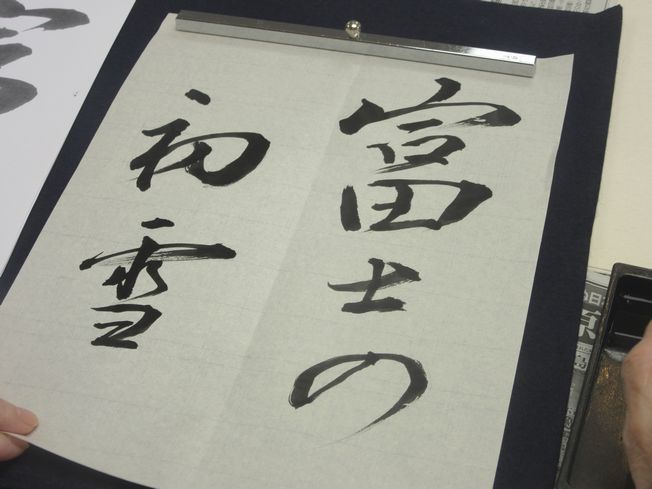 富士の
初雪